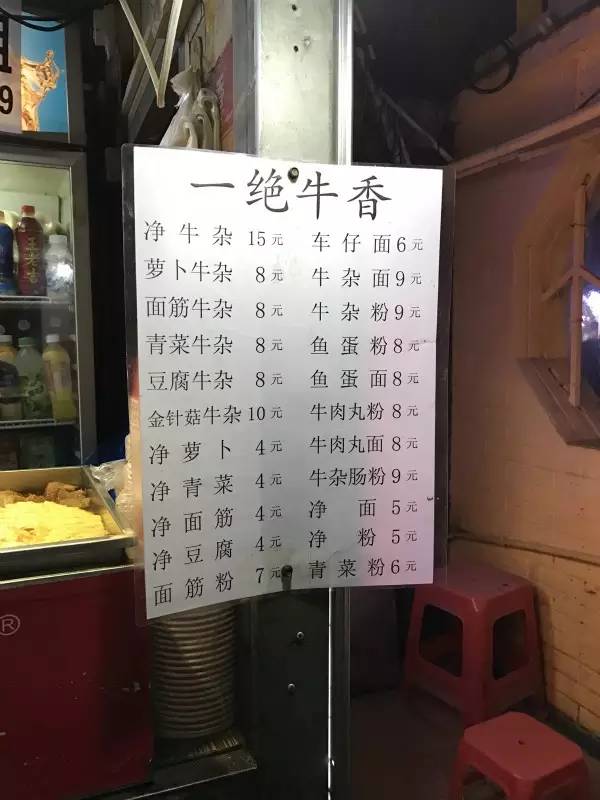 一绝牛香
净牛杂 15元
萝卜牛杂 8元
面筋牛杂 8元
青菜牛杂 8元
豆腐牛杂 8元
金针菇牛杂 10元
净萝卜 4元
净青菜 4元
净面筋 4元
净豆腐 4元
面筋粉 7元
车仔面 6元
牛杂面 9元
牛杂粉 9元
鱼蛋粉 8元
鱼蛋面 8元
牛肉丸粉 8元
牛肉丸面 8元
牛杂肠粉 9元
净面 5元
净粉 5元
青菜粉 6元
9
王老吉
®